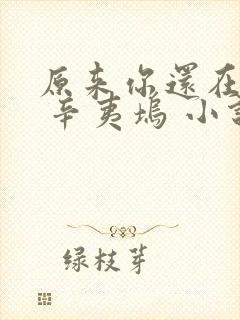 原来你還在
辛夷塢 小
绿枝芽